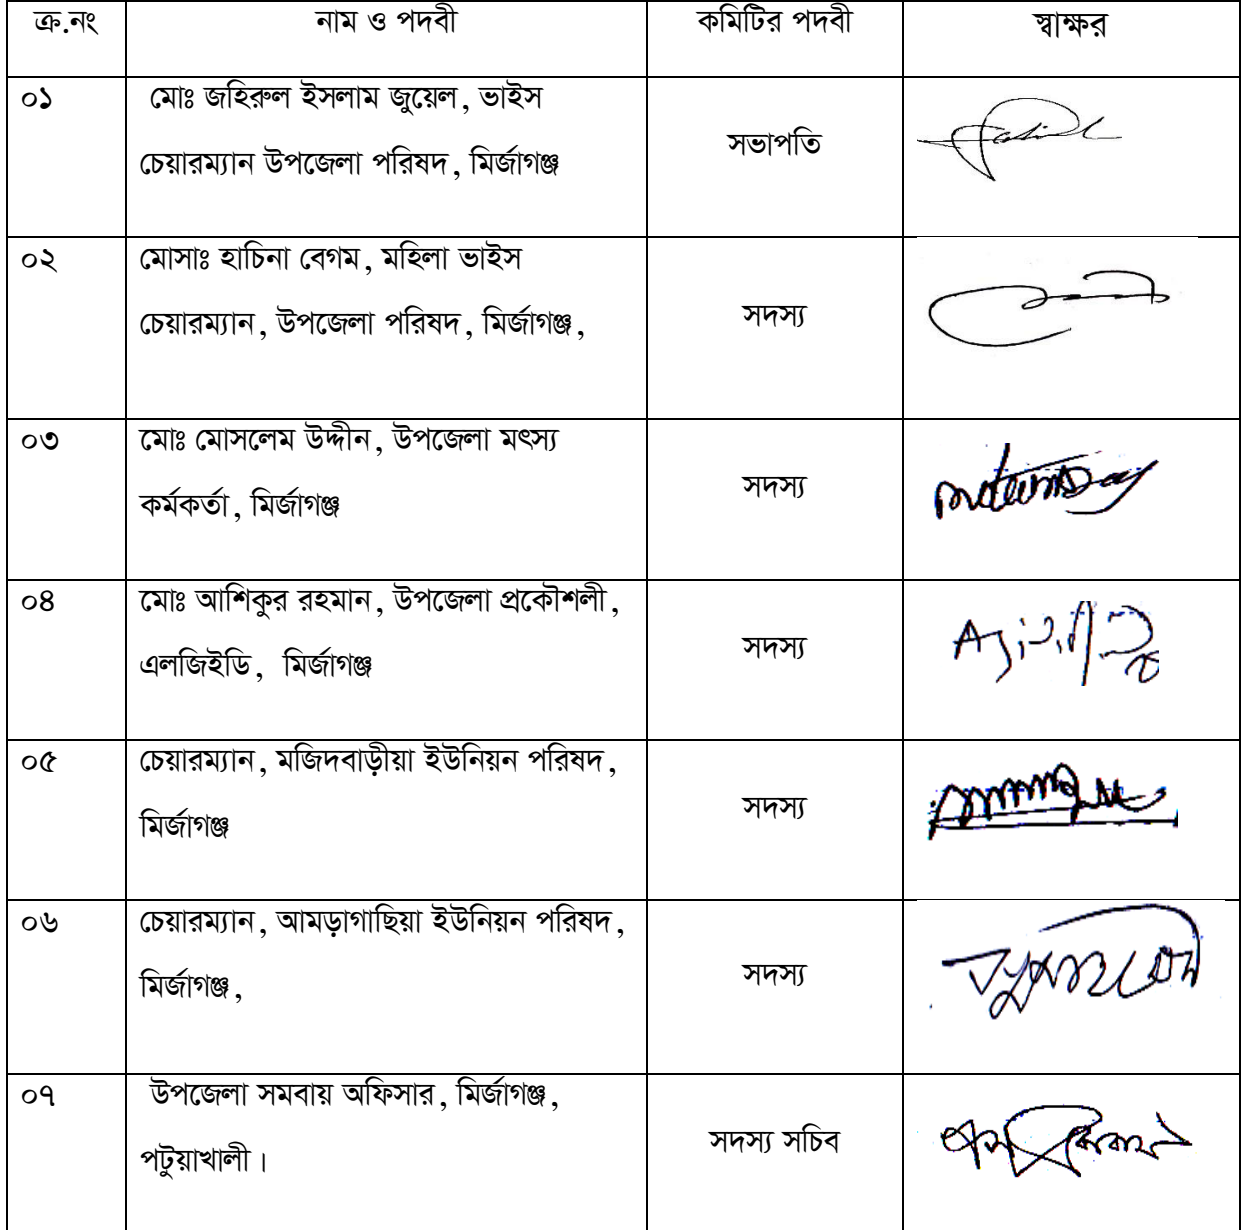 ক্র.নং নাম ও পদবী কমিটির পদবী স্বাক্ষর
০১ মোঃ জহিরুল ইসলাম জুয়েল, ভাইস
চেয়ারম্যান উপজেলা পরিষদ, মির্জাগঞ্জ
সভাপতি
০২ মোসাঃ হাচিনা বেগম, মহিলা ভাইস
চেয়ারম্যান, উপজেলা পরিষদ, মির্জাগঞ্জ,
সদস্য
০৩ মোঃ মোসলেম উদ্দীন, উপজেলা মৎস্য
কর্মকর্তা, মির্জাগঞ্জ
সদস্য
০৪ মোঃ আশিকুর রহমান, উপজেলা প্রকৌশলী,
এলজিইডি, মির্জাগঞ্জ
সদস্য
০৫ চেয়ারম্যান, মজিদবাড়ীয়া ইউনিয়ন পরিষদ,
মির্জাগঞ্জ
সদস্য
০৬ চেয়ারম্যান, আমড়াগাছিয়া ইউনিয়ন পরিষদ,
মির্জাগঞ্জ,
সদস্য
০৭ উপজেলা সমবায় অফিসার, মির্জাগঞ্জ,
পটুয়াখালী।
সদস্য সচিব